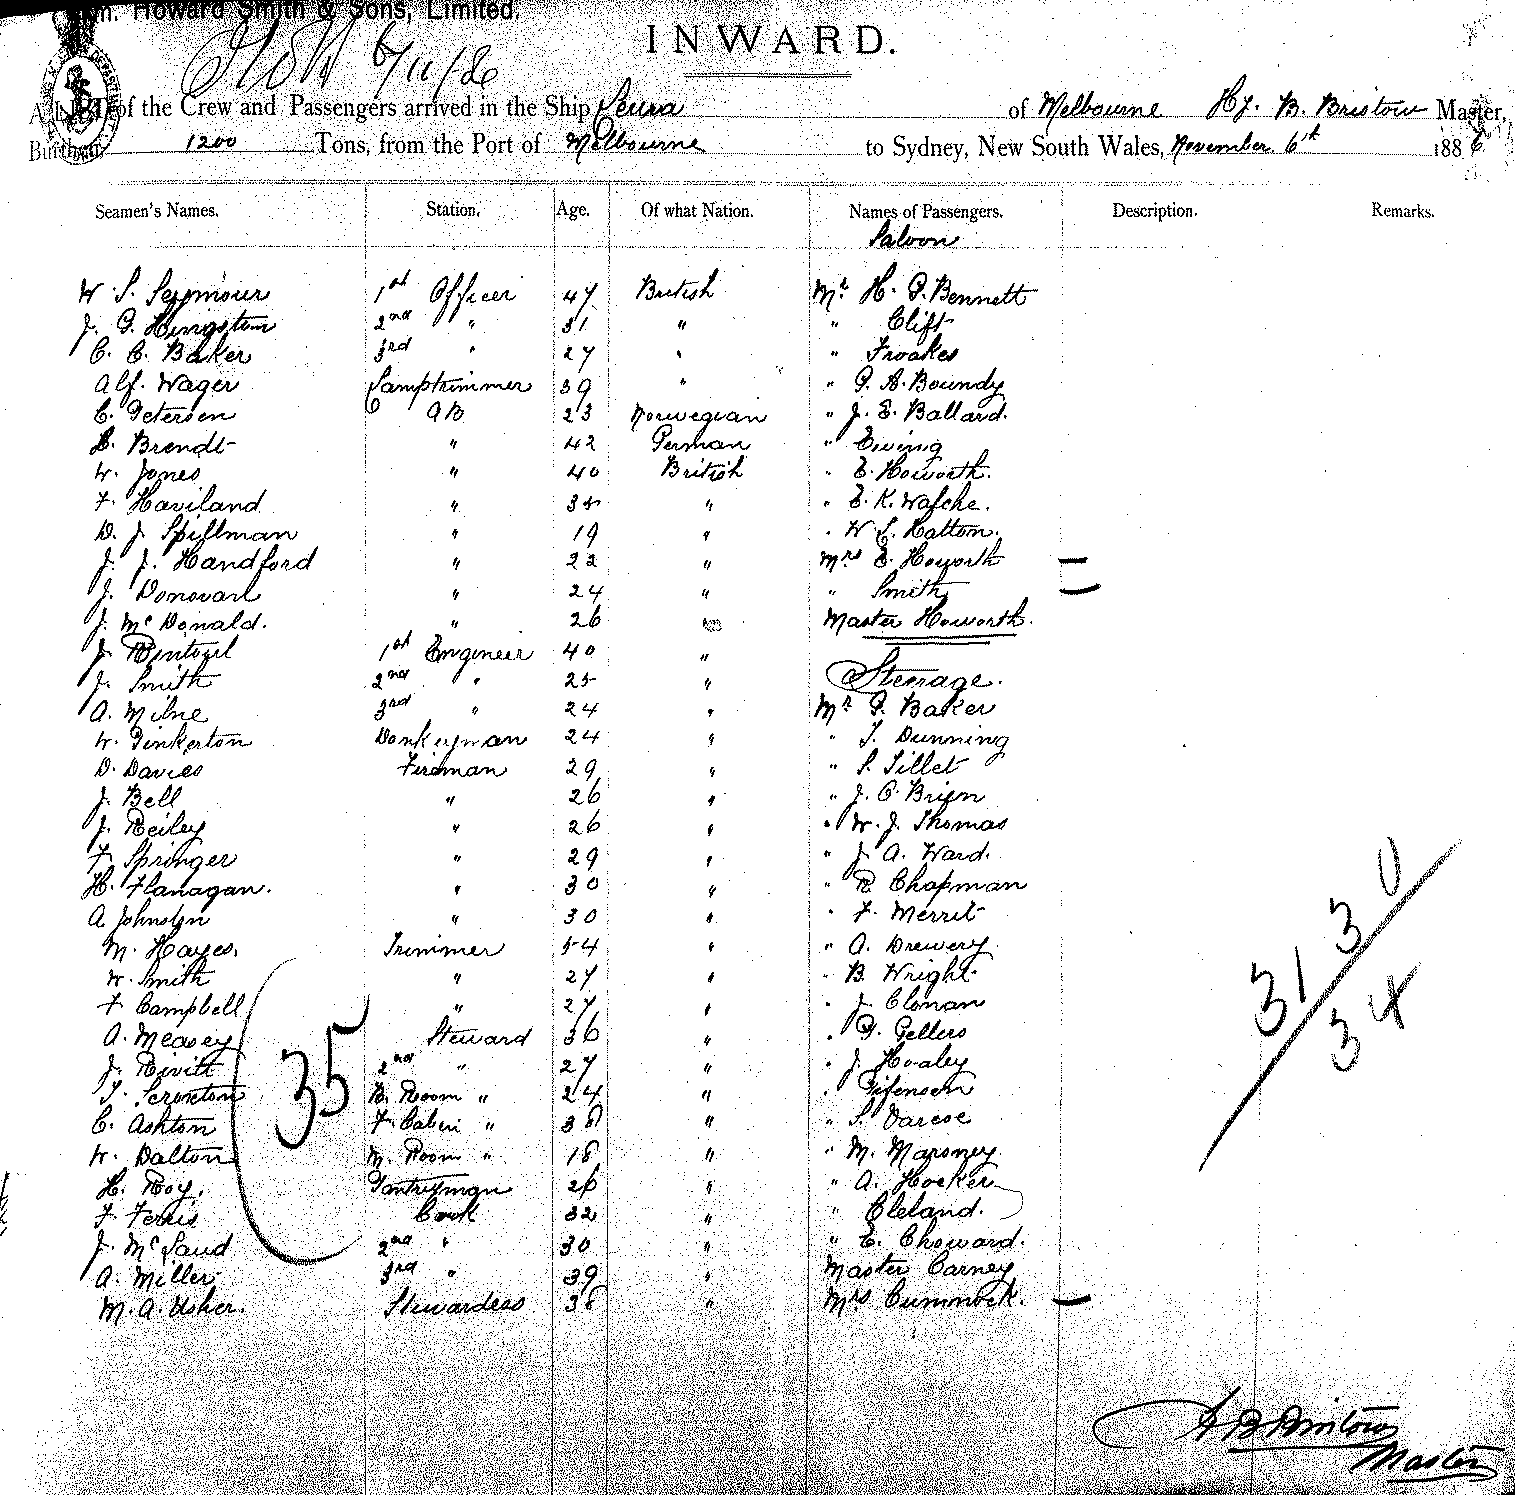 Wm. Howard Smith & Sons, Limited.
6/11/86
INWARD.
A LIST of the Crew and Passengers arrived in the Ship Leura of Melbourne Hy. B. Bristow Master,
Burthen 1200 Tons, from the Port of Melbourne to Sydney, New South Wales, November 6th 1886
Seamen's Names. Station. Age. Of what Nation. Names of Passengers. Description. Remarks.
Saloon
W. S. Seymour 1st Officer 47 British Mr. H. P. Bennett
J. P. Kingston 2nd " 31 " " Clift
C. C. Baker 3rd " 27 " " Froakes
Alf. Wager Lamptrimmer 39 " " P. A. Boundy
C. Petersen AB 23 Norwegian " J. E. Ballard.
H. Brendt " 42 German " Ewing
W. Jones " 40 British " E. Howorth.
F. Haviland " 35 " " E. K.
D. J. Spillman " 19 " " W. S. Hatton.
J. J. Handford " 22 " Mrs E. Howorth
J. Donovan " 24 " " Smith
J. McDonald. " 26 " Master Howorth.
J. Rintoul 1st Engineer 40 "
J. Smith 2nd " 25 " Steerage.
A. Milne 3rd " 24 " Mr. P. Baker
W. Pinkerton Donkeyman 24 " " T. Dunning
D. Davies Fireman 29 " " S. Sillet
J. Bell " 26 " " J. O'Brien
J. Reiley " 26 " " W. J. Thomas
F. Springer " 29 " " J. A. Ward.
H. Flanagan. " 30 " " R. Chapman
A. Johnston " 30 " " F. Merrit
M. Hayes. Trimmer 54 " " A. Drewery
W. Smith " 27 " " B. Wright
F. Campbell " 27 " " J. Clonan
A. Measey Steward 36 " " P. Pellers
J. Rivitt 2nd " 27 " " J. Hoaley
T. B. Room " 24 " "
C. Ashton F. Cabin " 38 " " S. Varcoe
W. Dalton M. Room " 18 " " M. Maroney
H. Roy. Pantryman 26 " " A. Hocker
F. Ferris Cook 32 " " Cleland.
J. McLaud 2nd " 30 " " E. Choward.
A. Miller 3rd " 39 " Master Carney
M. A. Usher. Stewardess 38 " Mrs Cummock.
35
31 30
34
H B Bristow
Master